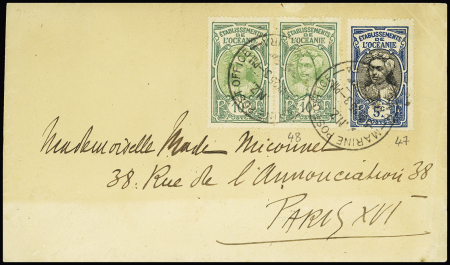 ÉTABLISSEMENTS
DE
L'OCÉANIE
ÉTABLISSEMENTS
DE
L'OCÉANIE
10
ÉTABLISSEMENTS
DE
L'OCÉANIE
5
MARINE POST OFFICE
MARINE POST OFFICE
48
47
Mademoiselle Made Miconnet
38. Rue de l'Annonciation 38
PARIS XVI